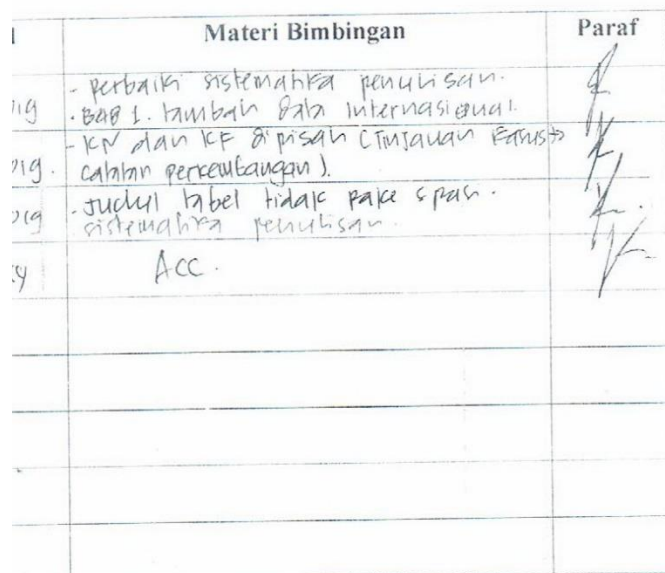 Materi Bimbingan Paraf
- Perbaiki sistematika penulisan.
19 . BAB 1. tambah data internasional.
- KN dan KF dipisah (Tinjauan Kasus →
019. catatan perkembangan).
019 - Judul tabel tidak pake spasi.
sistematika penulisan.
Acc.